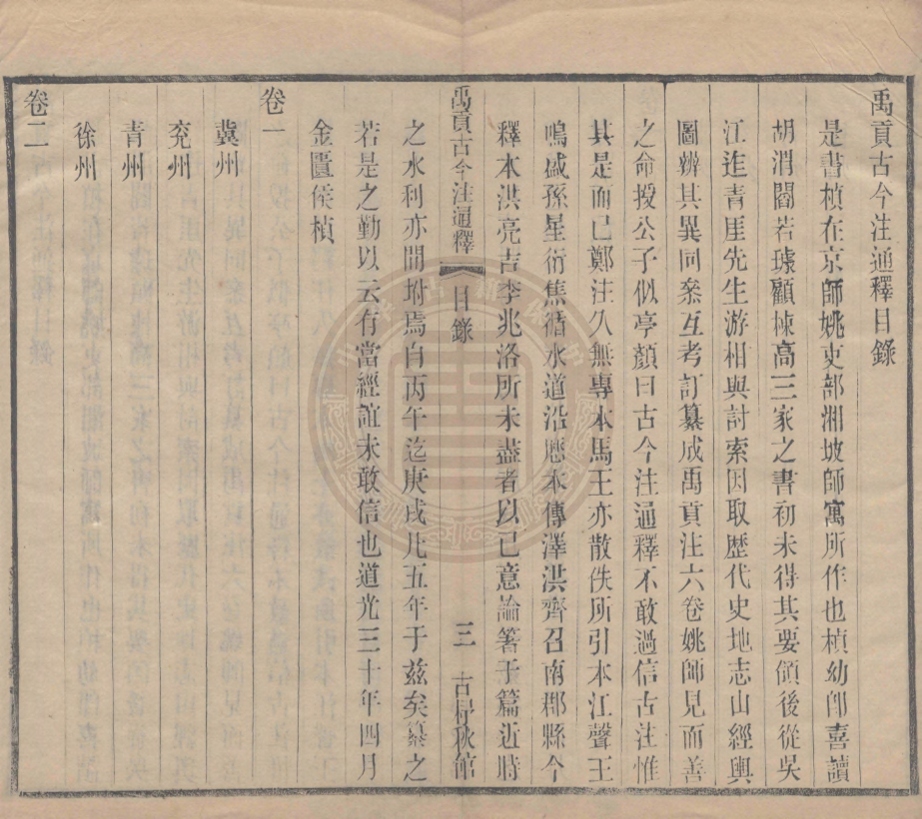 禹貢古今注通釋目錄
是書楨在京師姚吏部湘坡師寓所作也楨幼卽喜讀
胡渭閻若璩顧棟高三家之書初未得其要領後從吳
江迮青厓先生游相與討索因取歷代史地志山經輿
圖辨其異同叅互考訂纂成禹貢注六卷姚師見而善
之命授公子似亭顏曰古今注通釋不敢過信古注惟
其是而已鄭注久無專本馬王亦散佚所引本江聲王
鳴盛孫星衍焦循水道沿懸本傅澤洪齊召南郡縣今
釋本洪亮吉李兆洛所未盡者以已意論箸于篇近時
禹貢古今注通釋 目錄 三 古杼秋館
之水利亦間坿焉自丙午迄庚戌凡五年于兹矣纂之
若是之勤以云有當經誼未敢信也道光三十年四月
金匱侯楨
卷一
冀州
兗州
青州
徐州
卷二